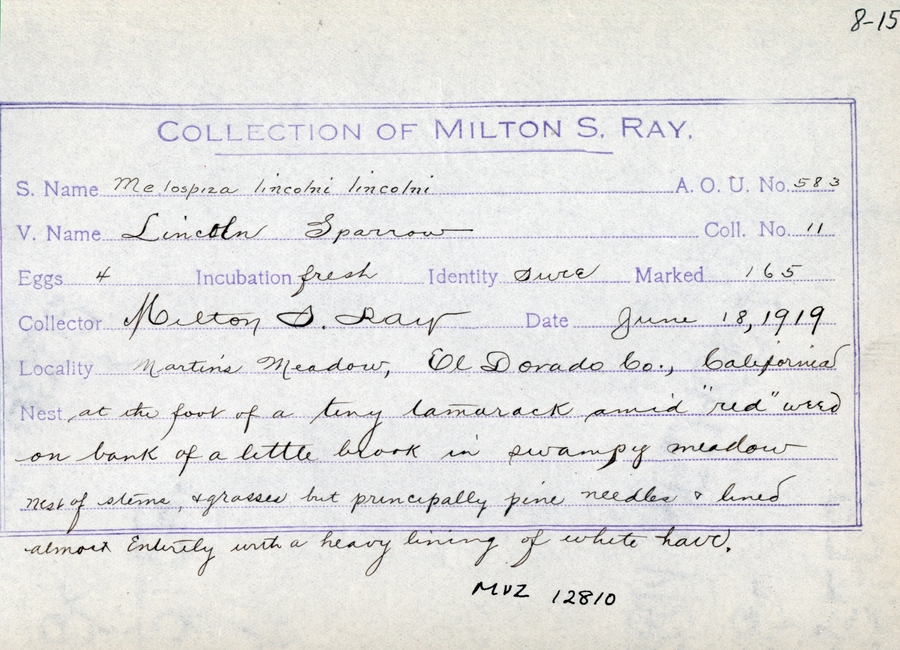 8-15
COLLECTION OF MILTON S. RAY.
S. Name Melospiza lincolni lincolni A. O. U. No. 583
V. Name Lincoln Sparrow Coll. No. 11
Eggs 4 Incubation fresh Identity sure Marked 165
Collector Milton S. Ray Date June 18, 1919
Locality Martin's Meadow, El Dorado Co., California
Nest at the foot of a tiny tamarack amid "red" weed
on bank of a little brook in swampy meadow
nest of stems, & grasses but principally pine needles & lined
almost Entirely with a heavy lining of white
MVZ 12810